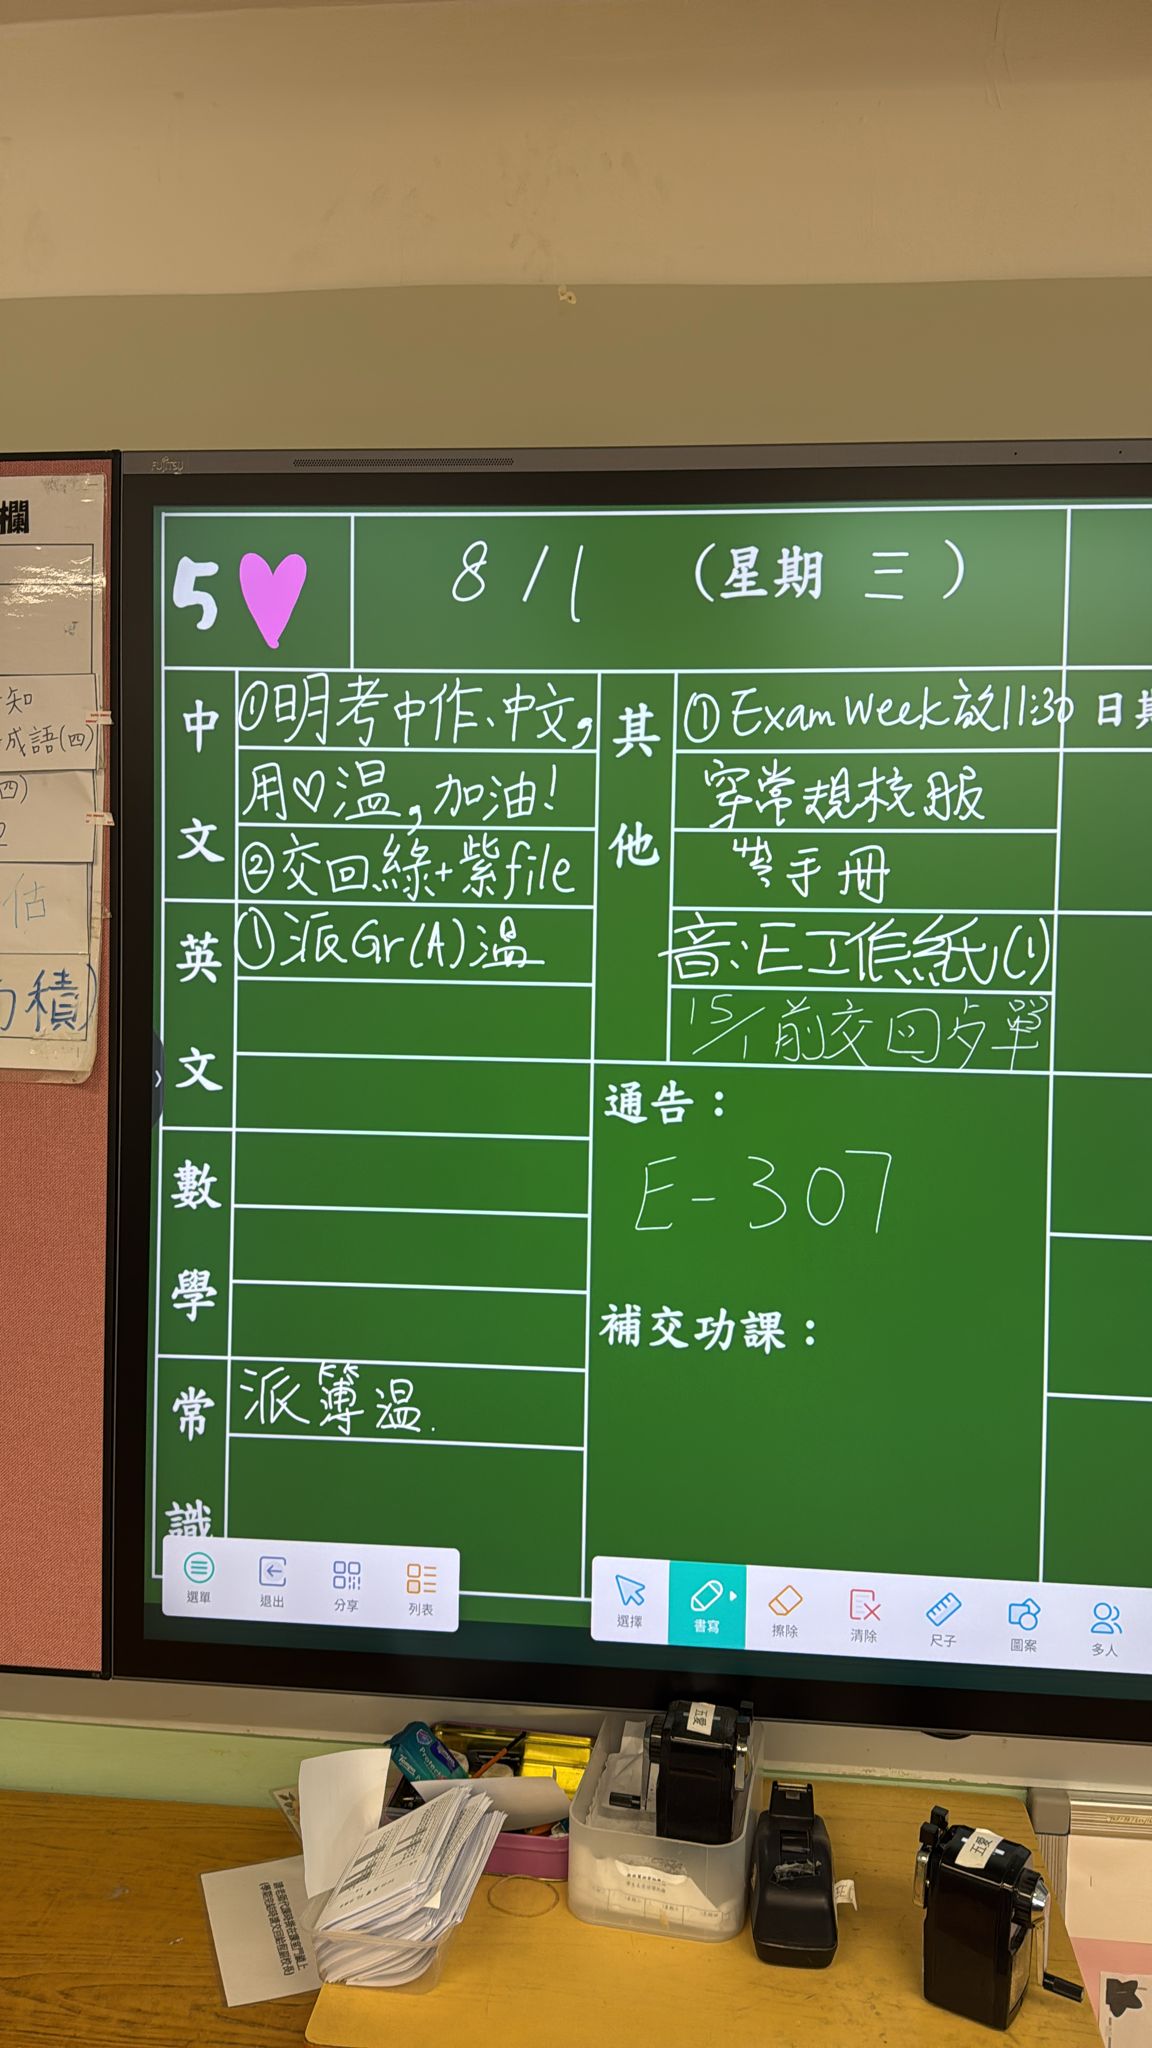 FUJITSU
欄
知
成語(四)
四)
2
估
積)
5
8/1 (星期 三)
中文
①明考中作、中文,
用♡温,加油!
②交回綠+紫file
英文
①派Gr(A)溫
數學
常識
派簿温.
其他
①Exam Week放11:30
穿常規校服
帶手冊
音:E工作紙(1)
15/1前交回夕單
日期
通告:
E-307
補交功課:
選單
退出
分享
列表
選擇
書寫
擦除
清除
尺子
圖案
多人
五愛
五愛